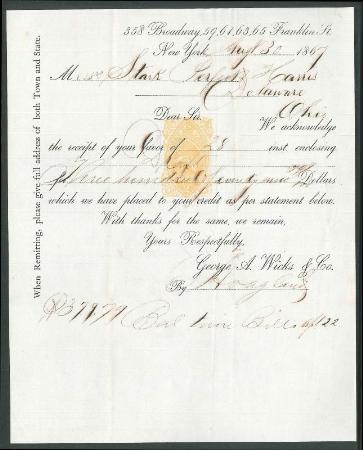 358 Broadway, 59, 61, 63, 65 Franklin St.
New York 1867
Mess Stark Harris
Delaware
Ohio
Dear Sir,
We acknowledge
the receipt of your favor of 28 inst enclosing
Three hundred Dollars
which we have placed to your credit as per statement below.
With thanks for the same, we remain,
Yours Respectfully,
George A. Wicks & Co.
By Hoagland
Bal Bills 22
When Remitting, please give full address of both Town and State.